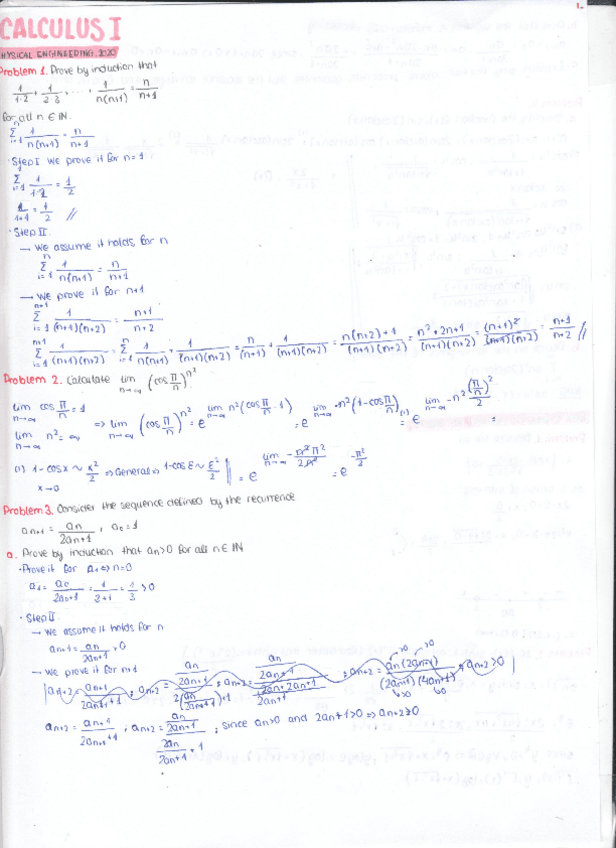 1.
CALCULUS I
PHYSICAL ENGINEERING, 2020
Problem 1. Prove by induction that
1/1·2 + 1/2·3 + ... + 1/n(n+1) = n/n+1
for all n ∈ IN.
n Σ i=1 1/n(n+1) = n/n+1
· Step I We prove it for n=1
1 Σ i=1 1/1·2 = 1/2
1/1+1 = 1/2 //
· Step II
→ We assume it holds for n
n Σ i=1 1/n(n+1) = n/n+1
→ We prove it for n+1
n+1 Σ i=1 1/(n+1)(n+2) = n+1/n+2
n+1 Σ i=1 1/(n+1)(n+2) = n Σ i=1 1/n(n+1) + 1/(n+1)(n+2) = n/(n+1) + 1/(n+1)(n+2) = n(n+2)+1/(n+1)(n+2) = n²+2n+1/(n+1)(n+2) = (n+1)²/(n+1)(n+2) = n+1/n+2 //
Problem 2. Calculate lim n→∞ (cos π/n)^n²
lim n→∞ cos π/n = 1
lim n→∞ n² = ∞ => lim n→∞ (cos π/n)^n² = e^lim n→∞ n²(cos π/n - 1) = e^lim n→∞ -n²(1-cos π/n) (1) = e^lim n→∞ -n² (π/n)²/2 =
(1) 1-cos x ~ x²/2 => General => 1-cos ε ~ ε²/2 || = e^lim n→∞ -n²π²/2n² = e^-π²/2
x→0
Problem 3. Consider the sequence defined by the recurrence
an+1 = an/2an+1, a0=1
a. Prove by induction that an>0 for all n ∈ IN
· Prove it for a1 <=> n=0
a1 = a0/2a0+1 = 1/2+1 = 1/3 > 0
· Step II
→ We assume it holds for n
an+1 = an/2an+1 > 0
→ We prove it for n+1
an+2 = an+1/2an+1+1; an+2 = an/2an+1 / 2an/2an+1 + 1; since an>0 and 2an+1>0 => an+2>0